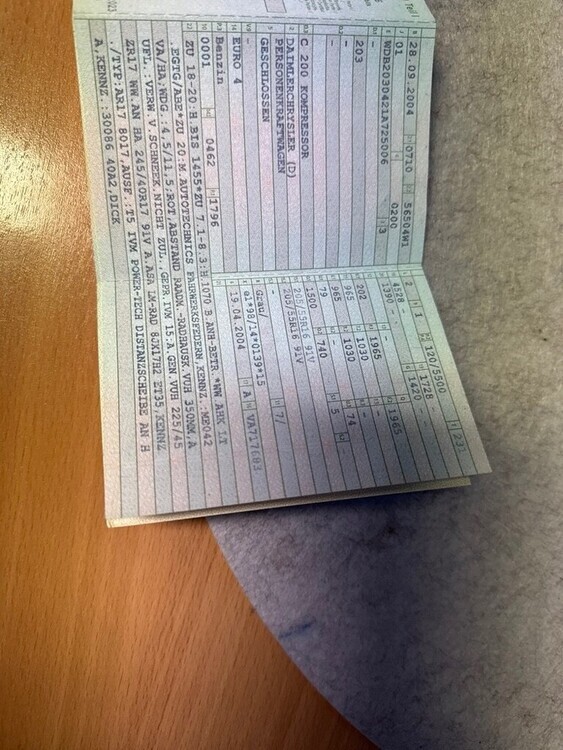 Teil I
B 28.09.2004 0710 56504W1
J 01 4 0200
E WDB2030421A725006 3 3
D.1 -
D.2 203
-
-
D.3 C 200 KOMPRESSOR
2 DAIMLERCHRYSLER (D)
5 PERSONENKRAFTWAGEN
GESCHLOSSEN
V.9 -
14 EURO 4
P.3 Benzin
10 0001 0462 1796
2 1 120/5500 223
4528 - 1728 -
1390 - 1420
- 1965 1965
202 1030 -
965 1030 74
965 - 5
79 740
1500
205/55R16 91V
205/55R16 91V
-
Grau/ 7/
e1*98/14*0139*15
19.04.2004 A VA717683
22 ZU 18-20:H.BIS 1455*ZU 7.1-8.3:H.1070 B.ANH-BETR.*WW.AHK LT
.EGTG/ABE*ZU 20:M.AUTOTECHNICS FAHRWERKSFEDERN,KENNZ.:ME042
VA/HA,WDG.:4,5/11,5;ROT,ABSTAND RADM.-RADHAUSK.VUH 350MM,A
UFL.:VERW.V.SCHNEEK.NICHT ZUL.,GEPR.IVM 15.A.GEN.VUH 225/45
ZR17 WW.AN HA 245/40R17 91V A.ASA LM-RAD 8JX17H2 ET35,KENNZ
./TYP:AR17 8017,AUSF.:T5 IVM POWER-TECH DISTANZSCHEIBE AN H
A,KENNZ.:30086 40A2,DICK